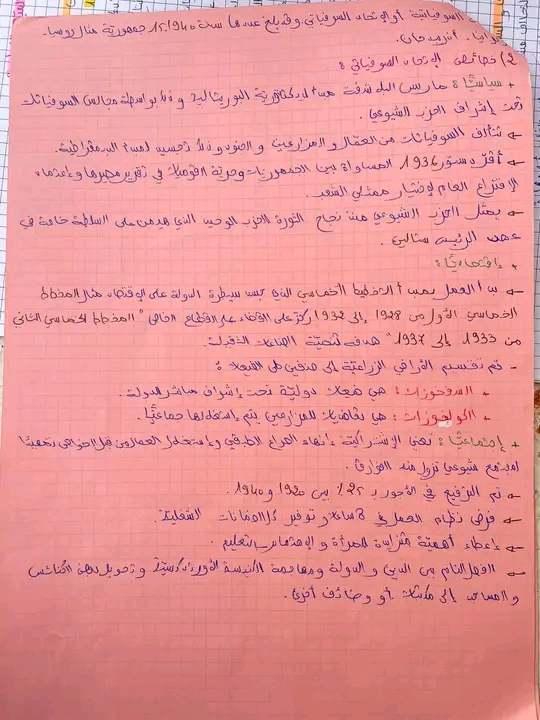 السوفياتية أو الإتحاد السوفياتي وقد بلغ عددها سنة 1940 15 جمهورية مثال روسيا -
أذربيجان.
2) خصائص الإتحاد السوفياتي:
+ سياسيًا: مارس البلاشفة مبدأ الديكتاتورية البروليتاليا وذلك بواسطة مجالس السوفياتات
تحت إشراف الحزب الشيوعي.
تتألف السوفياتات من العمال والمزارعين والجنود وذلك تجسيد لمبدأ الديمقراطية.
أقرّ دستور 1936 المساواة بين الجمهوريات وحرية القوميات في تقرير مصيرها وإعتماد
الإقتراع العام لإختيار ممثلي الشعب.
يمثل الحزب الشيوعي منذ نجاح الثورة الحزب الوحيد الذي هيمن على السلطة خاصة في
عهد الرئيس ستالين.
+ إقتصاديًا:
بدأ العمل بمبدأ التخطيط الخماسي الذي جسد سيطرة الدولة على الإقتصاد مثال المخطط
الخماسي الأول من 1928 إلى 1932 ركز على القضاء على القطاع الخاص "المخطط الخماسي الثاني
من 1933 إلى 1937" هدفه تنمية الصناعات الثقيلة.
- تم تقسيم الأراضي الزراعية إلى صنفين من الضيعات:
+ السوفخوزات: هي ضيعات دوليّة تحت إشراف مباشر للدولة.
+ الكولخوزات: هي تعاضديات للمزارعين يتم إستغلالها جماعيًا.
+ إجتماعيًا: تعني الإشتراكية إنهاء الصراع الطبقي وإستغلال العمال من قبل الخواص تحقيقًا
لمجتمع شيوعي تزول فيه الفوارق.
تم الترفيع في الأجور ب 25% بين 1920 و 1940.
فرض نظام العمل في 8 ساعات وتوفير كل الضمانات الشغلية.
إعطاء أهمية متزايدة للمرأة والإهتمام بالتعليم.
الفصل التام بين الدين والدولة ومهاجمة الكنيسة الأورثودكسية وتحويل بعض الكنائس
والمساجد إلى مكتبات أو وظائف أخرى.